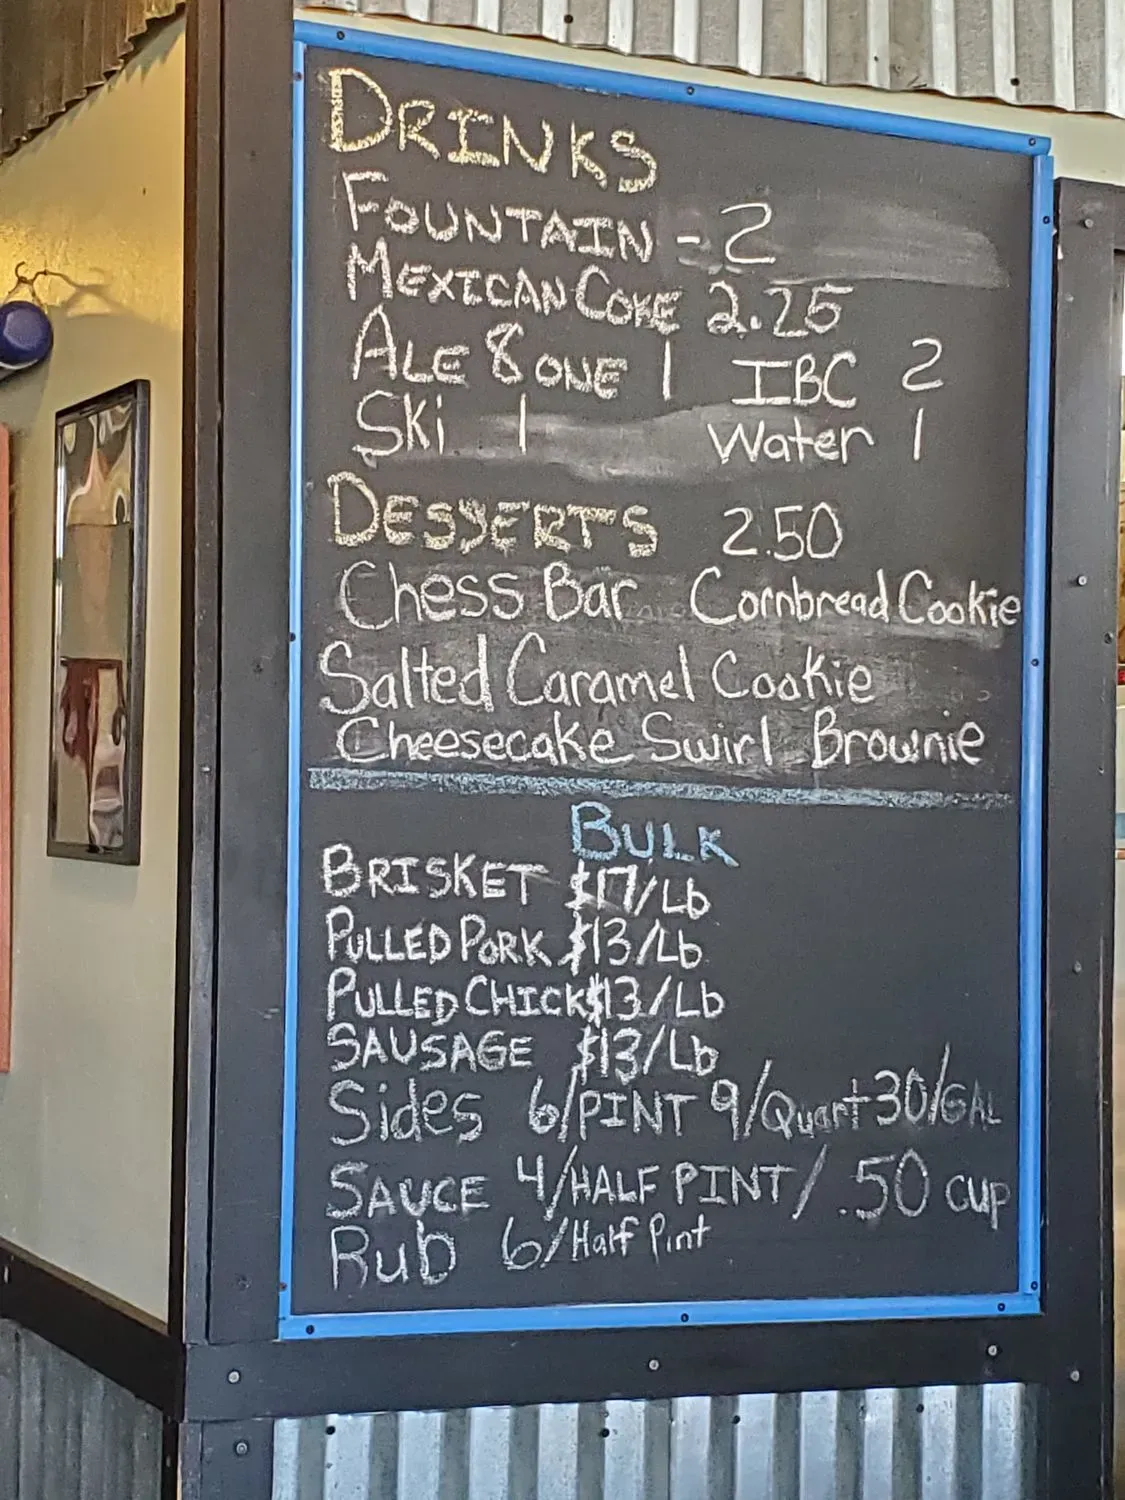 DRINKS
FOUNTAIN - 2
MEXICAN COKE 2.25
ALE 8 ONE 1 IBC 2
SKi 1 Water 1
DESSERTS 2.50
Chess Bar Cornbread Cookie
Salted Caramel Cookie
Cheesecake Swirl Brownie
BULK
BRISKET $17/Lb
PULLED PORK $13/Lb
PULLED CHICK $13/Lb
SAUSAGE $13/Lb
Sides 6/PINT 9/Quart 30/GAL
SAUCE 4/HALF PINT/ .50 cup
Rub 6/Half Pint